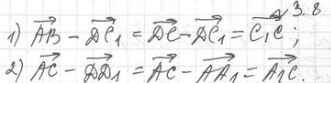 № 3.8
1) $\overrightarrow{AB} - \overrightarrow{DC_1} = \overrightarrow{DC} - \overrightarrow{DC_1} = \overrightarrow{C_1C}$ ;
2) $\overrightarrow{AC} - \overrightarrow{DD_1} = \overrightarrow{AC} - \overrightarrow{AA_1} = \overrightarrow{A_1C}$.